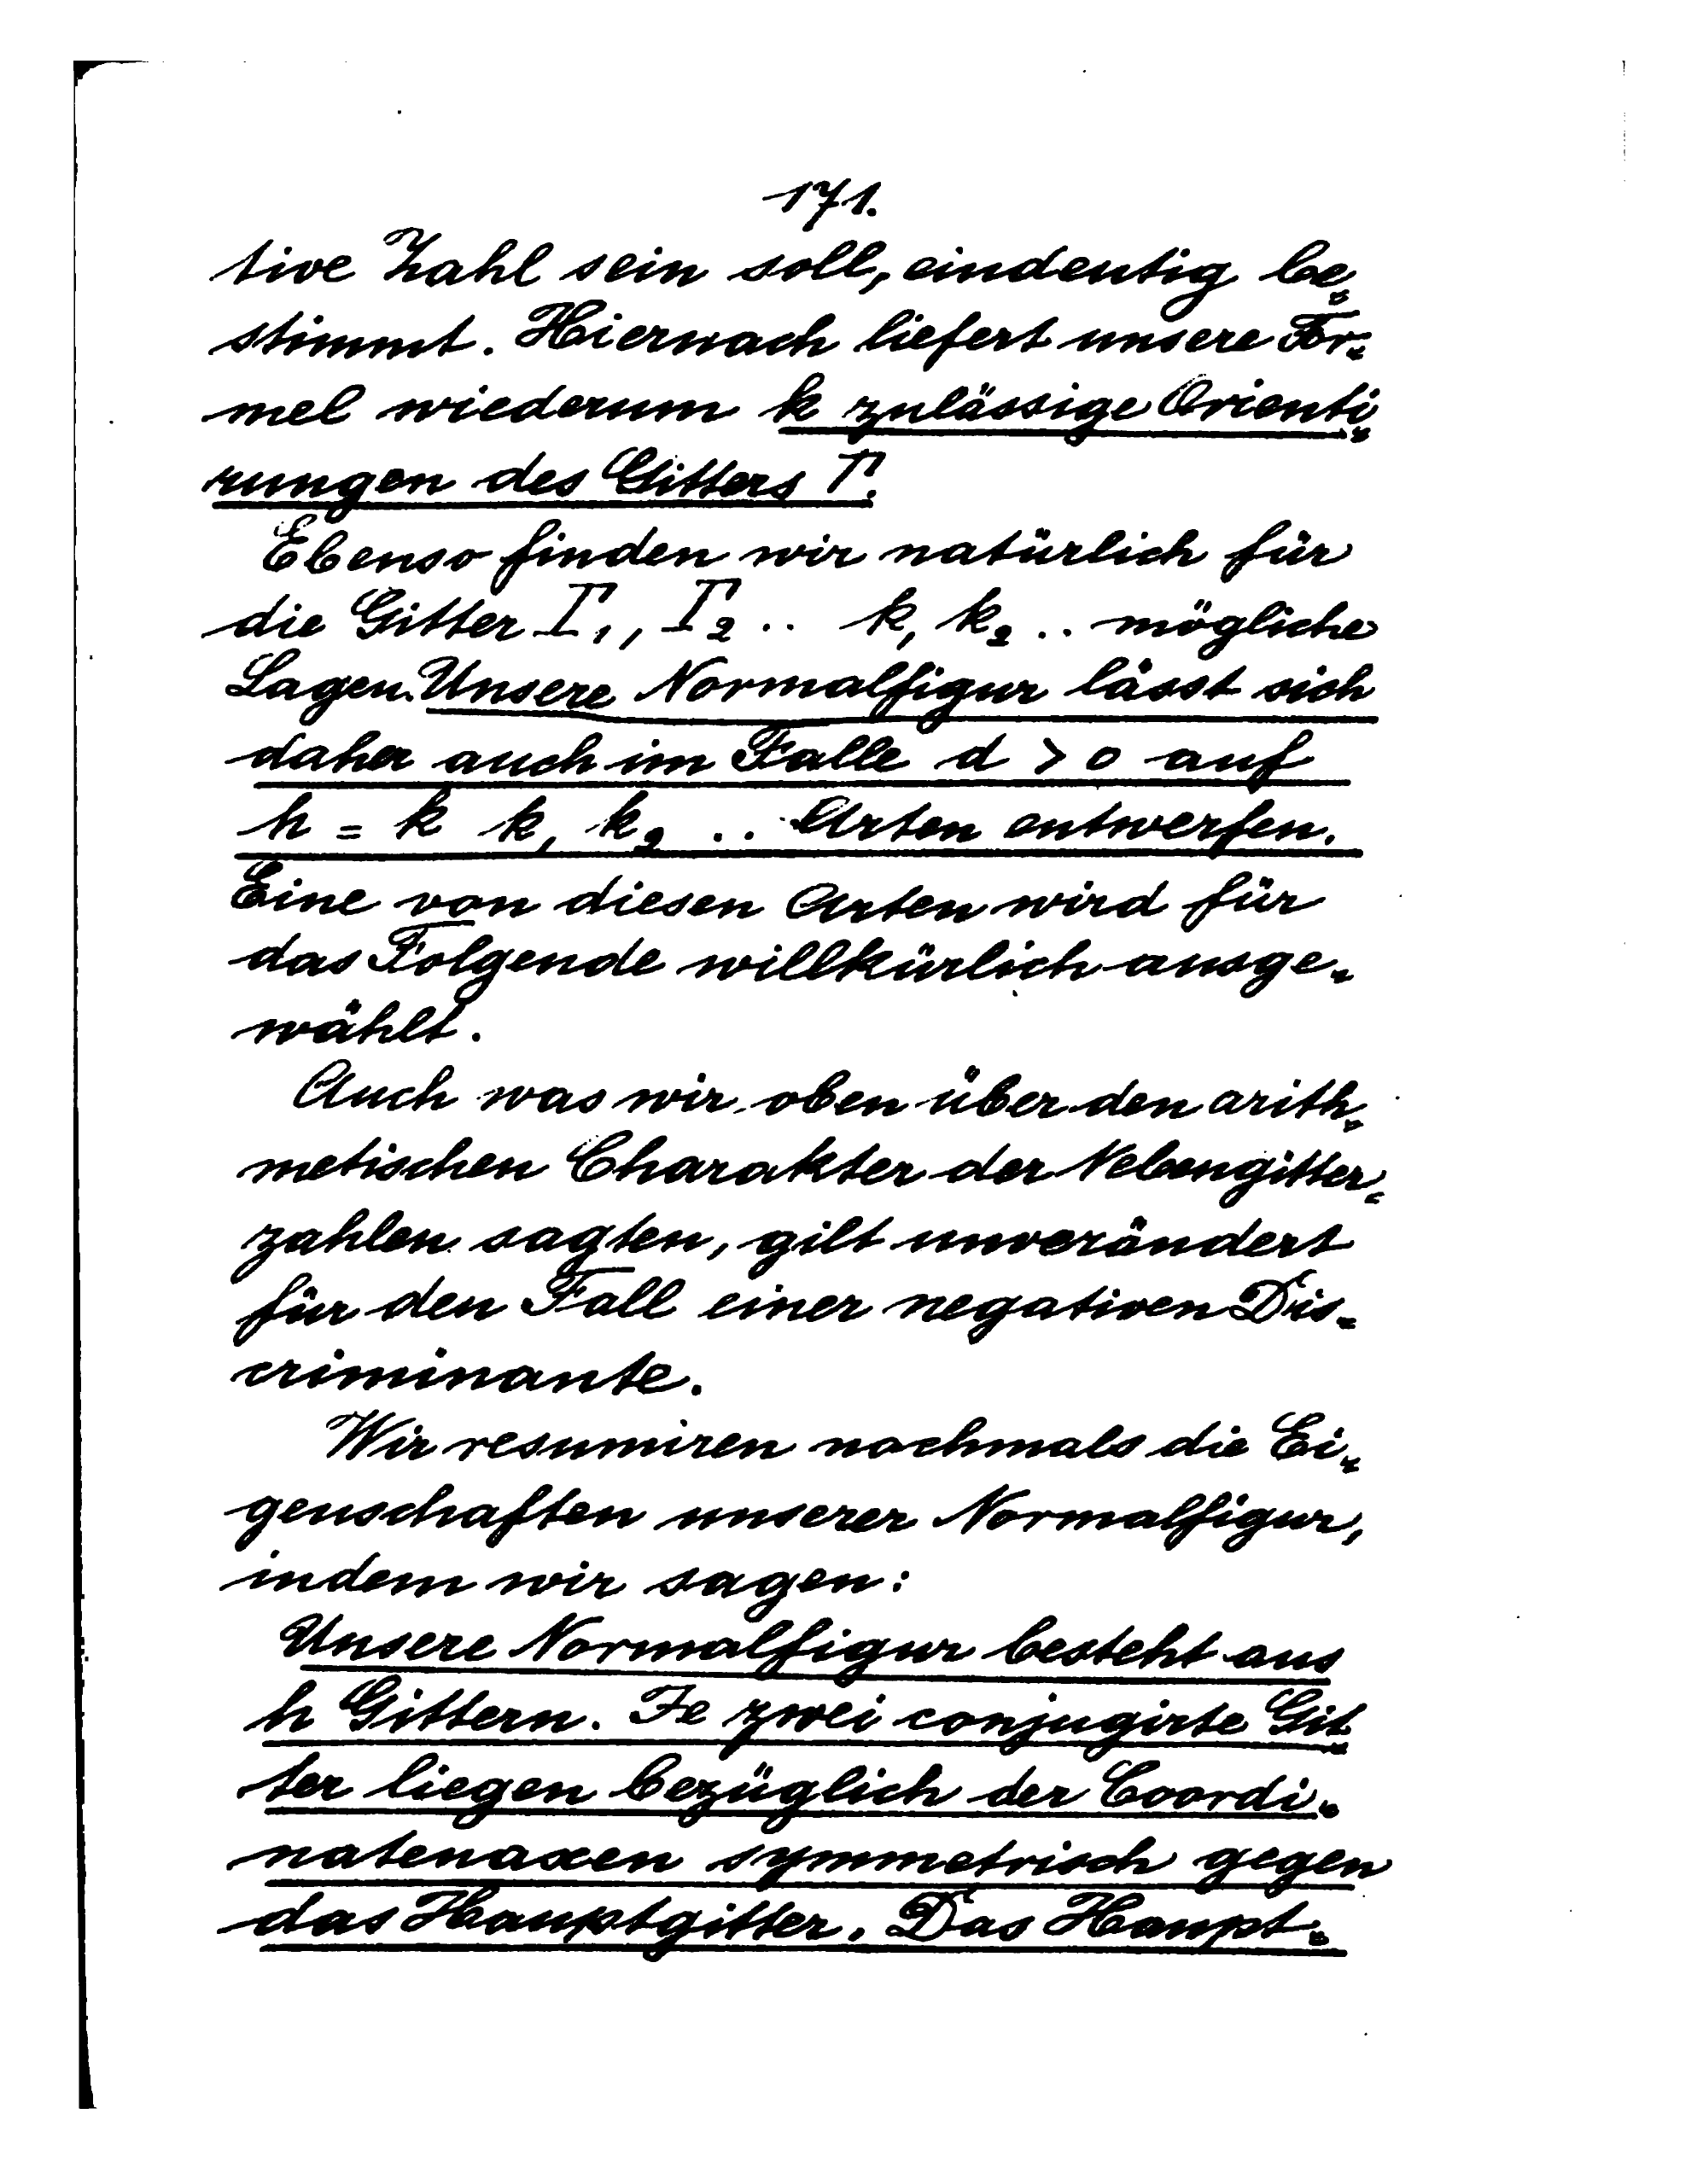 171.
tive Zahl sein soll, eindeutig be-
stimmt. Hiernach liefert unsere For-
mel wiederum k zulässige Orienti-
rungen des Gitters Γ.
Ebenso finden wir natürlich für
die Gitter Γ₁, Γ₂ .. k₁ k₂ .. mögliche
Lagen. Unsere Normalfigur lässt sich
daher auch im Falle d > 0 auf
h = k k₁ k₂ .. Arten entwerfen.
Eine von diesen Arten wird für
das Folgende willkürlich ausge-
wählt.
Auch was wir oben über den arith-
metischen Charakter der Nebengitter-
zahlen sagten, gilt unverändert
für den Fall einer negativen Dis-
criminante.
Wir resumiren nochmals die Ei-
genschaften unserer Normalfigur,
indem wir sagen:
Unsere Normalfigur besteht aus
h Gittern. Je zwei conjugirte Git-
ter liegen bezüglich der Coordi-
natenaxen symmetrisch gegen
das Hauptgitter. Das Haupt-